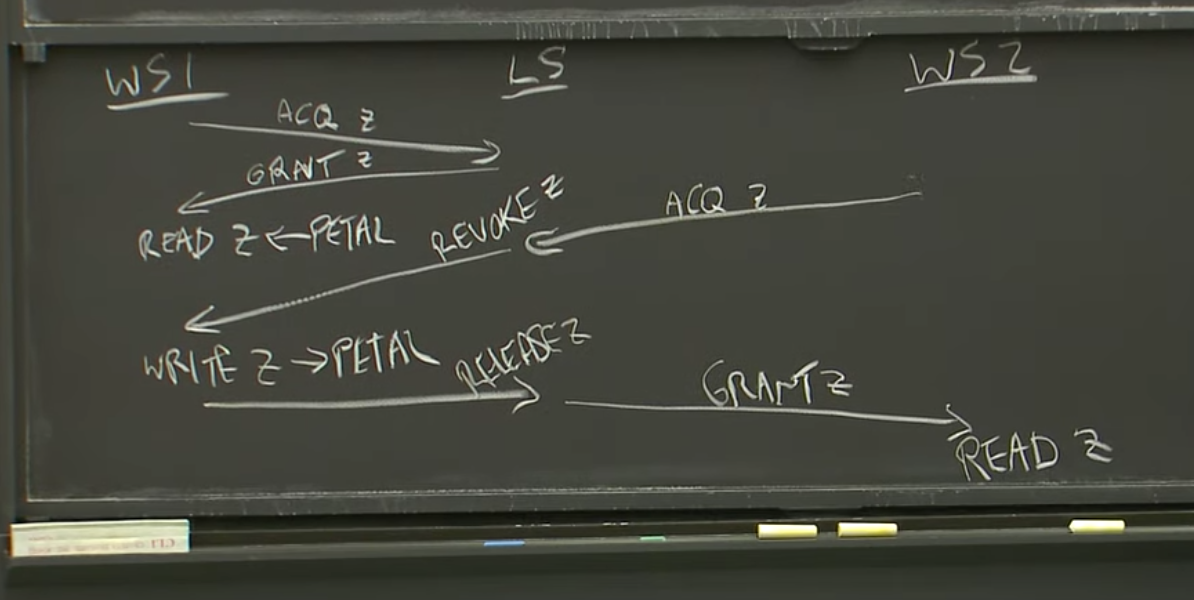 WS1 LS WS2
ACQ Z
GRANT Z
ACQ Z
REVOKE Z
READ Z ← PETAL
WRITE Z → PETAL
RELEASE Z
GRANT Z
READ Z